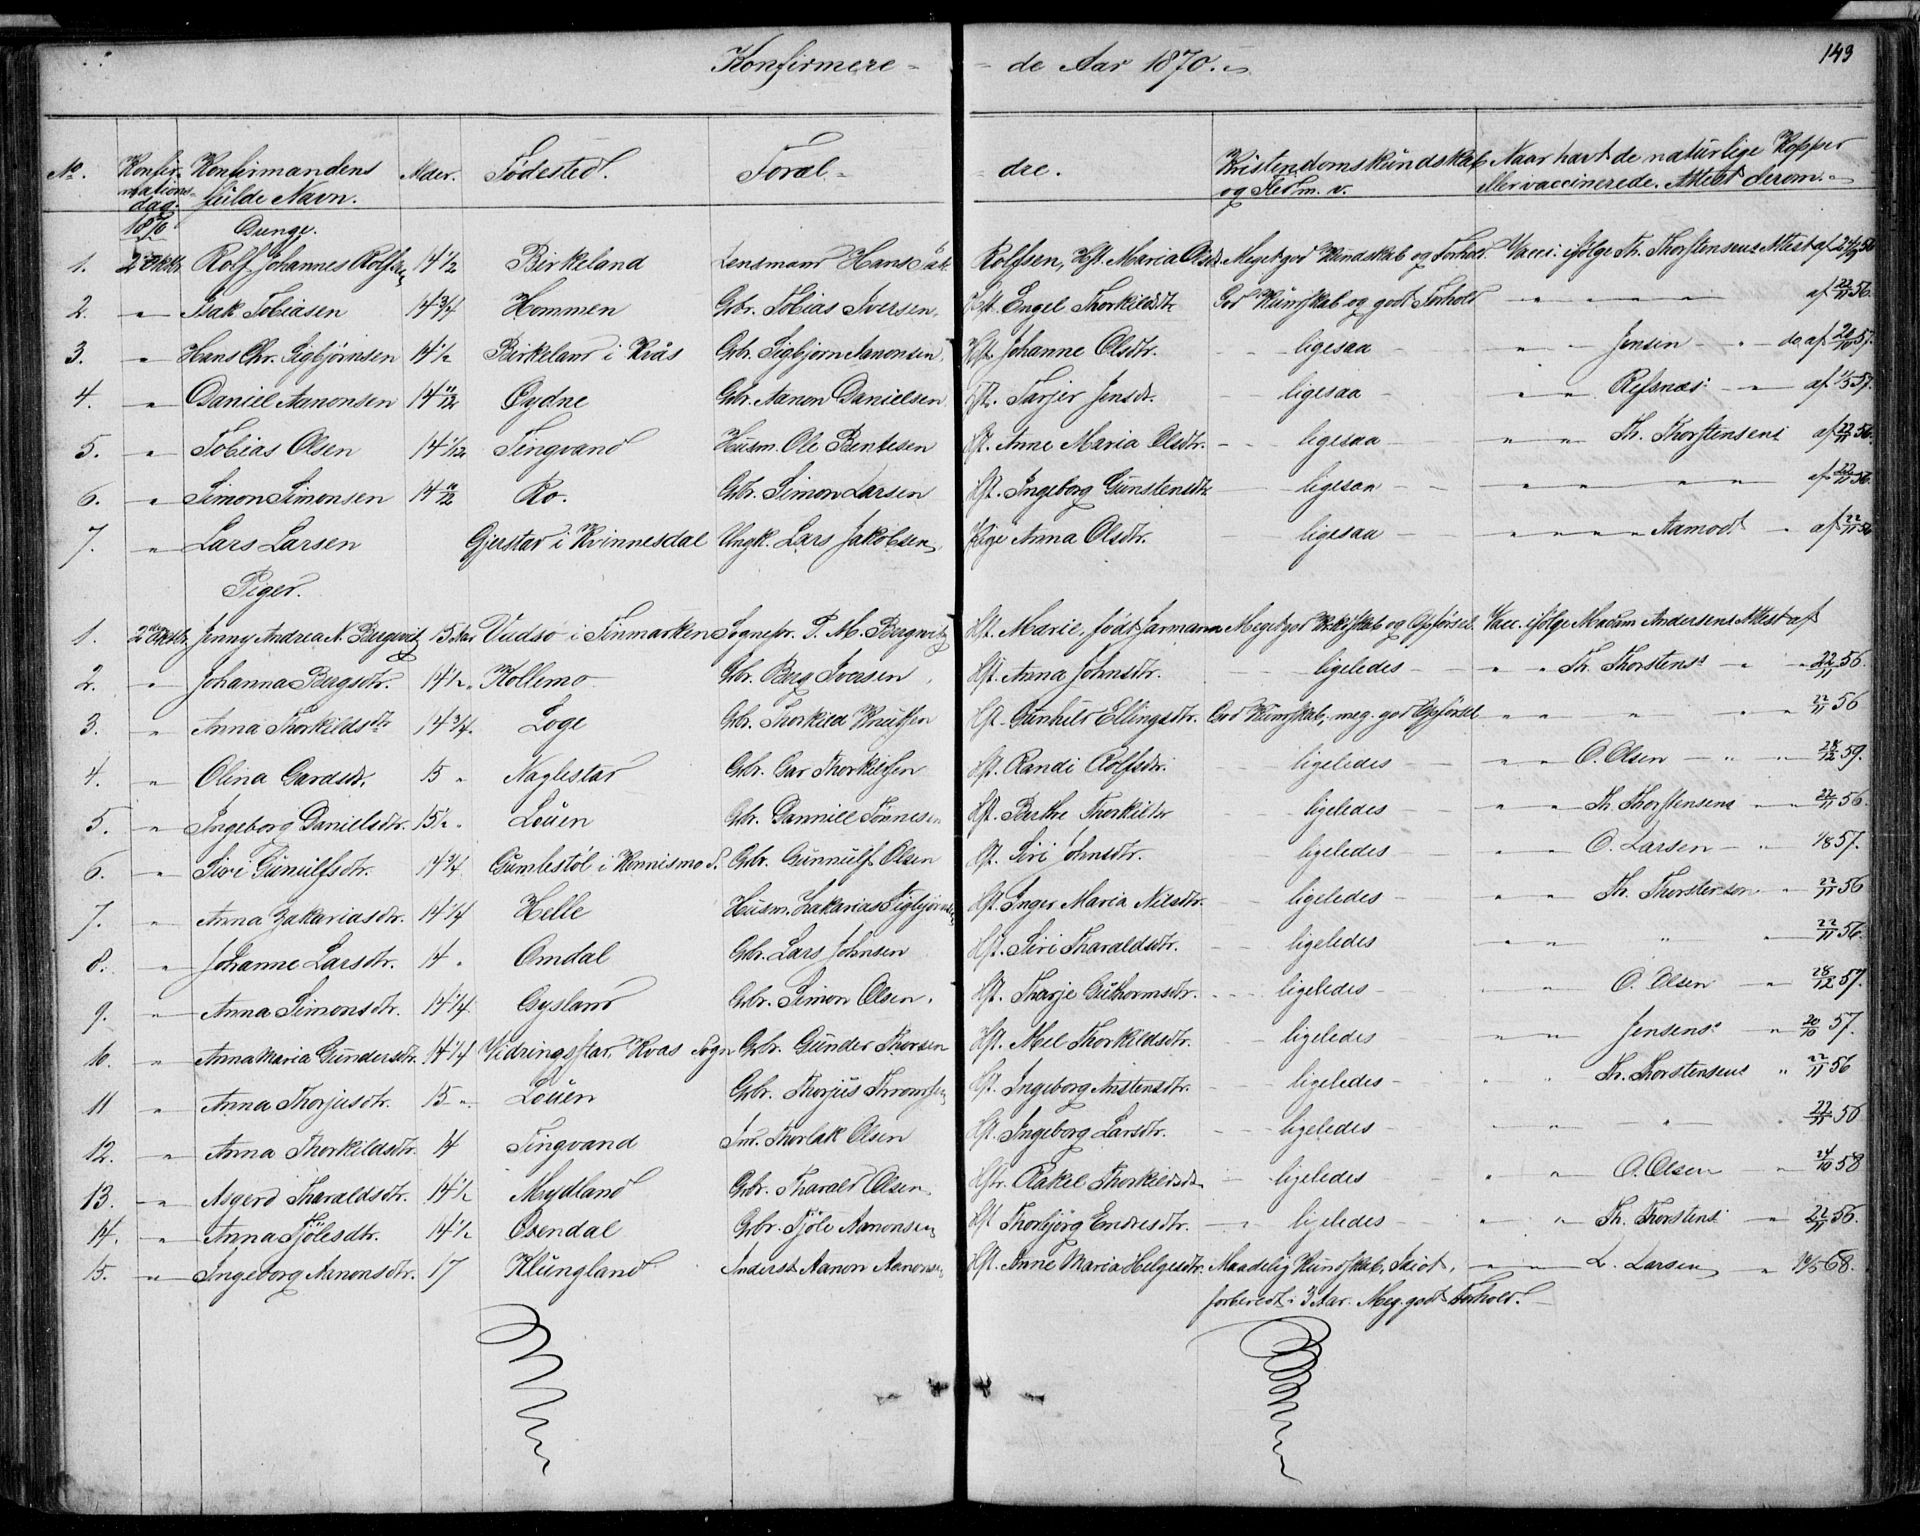 Konfirmere - - de Aar 1870.
143
No. Konfir-mations-dag. Konfirmandens fulde Navn. Alder. Fødested. Foræl- - dre. Kristendomskundskab og Forh. m. v. Naar havt de naturlige Kopper eller vaccinerede. Attest derom.
1870 Drenge.
1. 2den Oktbr. Rolf Johannes Rolfsen 14 1/2 Birkeland Lensmand Hans Rolfsen, Hst. Maria Olsdt. Meget god Kundskab og Forhold. Vacci. ifølge Th. Thorstensens Attest af 56
2. " Isak Tobiasen 14 3/4 Hommen Gbr. Tobias Iversen, Hst. Engel Thorkildsdtr. God Kundskab og godt Forhold " " " " af 22/11 56.
3. " Hans Chr. Sigbjørnsen 14 1/2 Birkeland i Kvås Gbr. Sigbjørn Aanonsen, Hst. Johanne Olsdtr. - ligesaa - " " Jensen - " - do af 20/10 57.
4. " Daniel Aanonsen 14 11/12 Øydne Gbr. Aanon Danielsen Hst. Tarjer Jensdt. - ligesaa - " " Refsnæs - " - af 1/5 57.
5. " Tobias Olsen 14 1/12 Tingvand Husm. Ole Bentesen Hst. Anne Maria Olsdtr. - - ligesaa - " " Th. Thorstensens af 22/11 56.
6. " Simon Simonsen 14 11/12 Ro. Gbr. Simon Larsen Hst. Ingeborg Gunstensdtr. - ligesaa - - " " " " " af 22/11 56.
7. " Lars Larsen Gjerstad i Kvinnesdal Ungk. Lars Jakobsen, Pige Anna Olsdtr. - ligesaa - " " " " Aamodt " af 22/11 56
Piger.
1. 2den Oktbr. Jenny Andrea N. Bergwitz 15 Aar Vadsø i Finmarken Sognepr. P. M. Bergwitz Hst. Marie, født Jarmann Meget god Kundskab og Opførsel. Vacc. ifølge Madam Andersens Attest af
2. " Johanna Bergsdtr. 14 1/2 " Kollemo Gbr. Berg Iversen, Hst. Anna Johnsdtr. - ligeledes - - " " Th. Thorstens: - " - " 22/11 56.
3. " Anna Thorkildsdtr 14 3/4. Loge Gbr. Thorkild Knutsen Hst. Gunhild Ellingsdtr. God Kundskab, meg. god Opførsel " " " " " 22/11 56
4. " Olina Gardsdtr. 15 " Naglestad Gbr. Gar Thorkildsen Hst. Randi Rolfsdtr. - - ligeledes - - " " O. Olsen - " " 28/12 59.
5. " Ingeborg Danielsdtr. 15 1/2 " Løuen Gbr. Danniel Tønnesen Hst. Berthe Thorkildsdtr - - ligeledes - " " Th. Thorstensens " " 22/11 56.
6. " Siri Gunulfsdtr. 14 3/4 Gumlestøl i Konnismo S. Gbr. Gunnulf Olsen Hst. Siri Johnsdtr. ligeledes - - " " O. Larsen - " 1/8 57.
7. " Anna Zakariasdtr. 14 1/4 Helle Husm. Zakarias Sigbjørnsen Hst. Inger Maria Nilsdtr. - ligeledes - - " " Th. Thorstenson " 22/11 56
8. " Johanne Larsdtr. 14 " Omdal Gbr. Lars Johnsen Hst. Siri Tharaldsdtr. - - ligeledes - " " " " 22/11 56.
9. " Anna Simonsdtr. 14 1/4. Gysland Gbr. Simon Olsen. Hst. Tharje Guthormsdtr. - - - ligeledes - - " " O. Olsen " 28/12 57.
10. " Anna Maria Gundersdtr. 14 1/4 Vidringsstad, Kvas Sogn Gbr. Gunder Thorsen Hst. Mel Thorkildsdtr. - ligeledes - - " " Jensens: " 20/10 57.
11 " Anna Thorjusdtr. 15 " Løuen Gbr. Thorjus Thromsen, Hst. Ingeborg Aistensdtr. - - ligeledes - " " Th. Thorstensens " 22/11 56
12. " Anna Thorkildsdtr. 14 Tingvand Thorlak Olsen Hst. Ingeborg Larsdtr. - - ligeledes - - " " - " 22/11 56
13. " Asgerd Tharaldsdtr. 14 1/2 Mydland Gbr. Tharald Olsen, Hstr. Rakel Thorkildsdtr - ligeledes - - " " O. Olsen " 24/10 58
14. " Anna Tjølesdtr. 14 1/2 Oxendal Gbr. Tjøle Aanonsen, Hst Thorbjørg Endresdtr. - " ligeledes - " " Th. Thorstens: " 22/11 56.
15. " Ingeborg Aanonsdtr. 17 Klungland Inderst Aanon Aanonsen Hst. Anne Maria Helgesdtr. Maadelig Kundskab, Idiot, " " L. Larsen " 19/5 68.
forberedt i 3 Aar. Meg. godt Forhold.